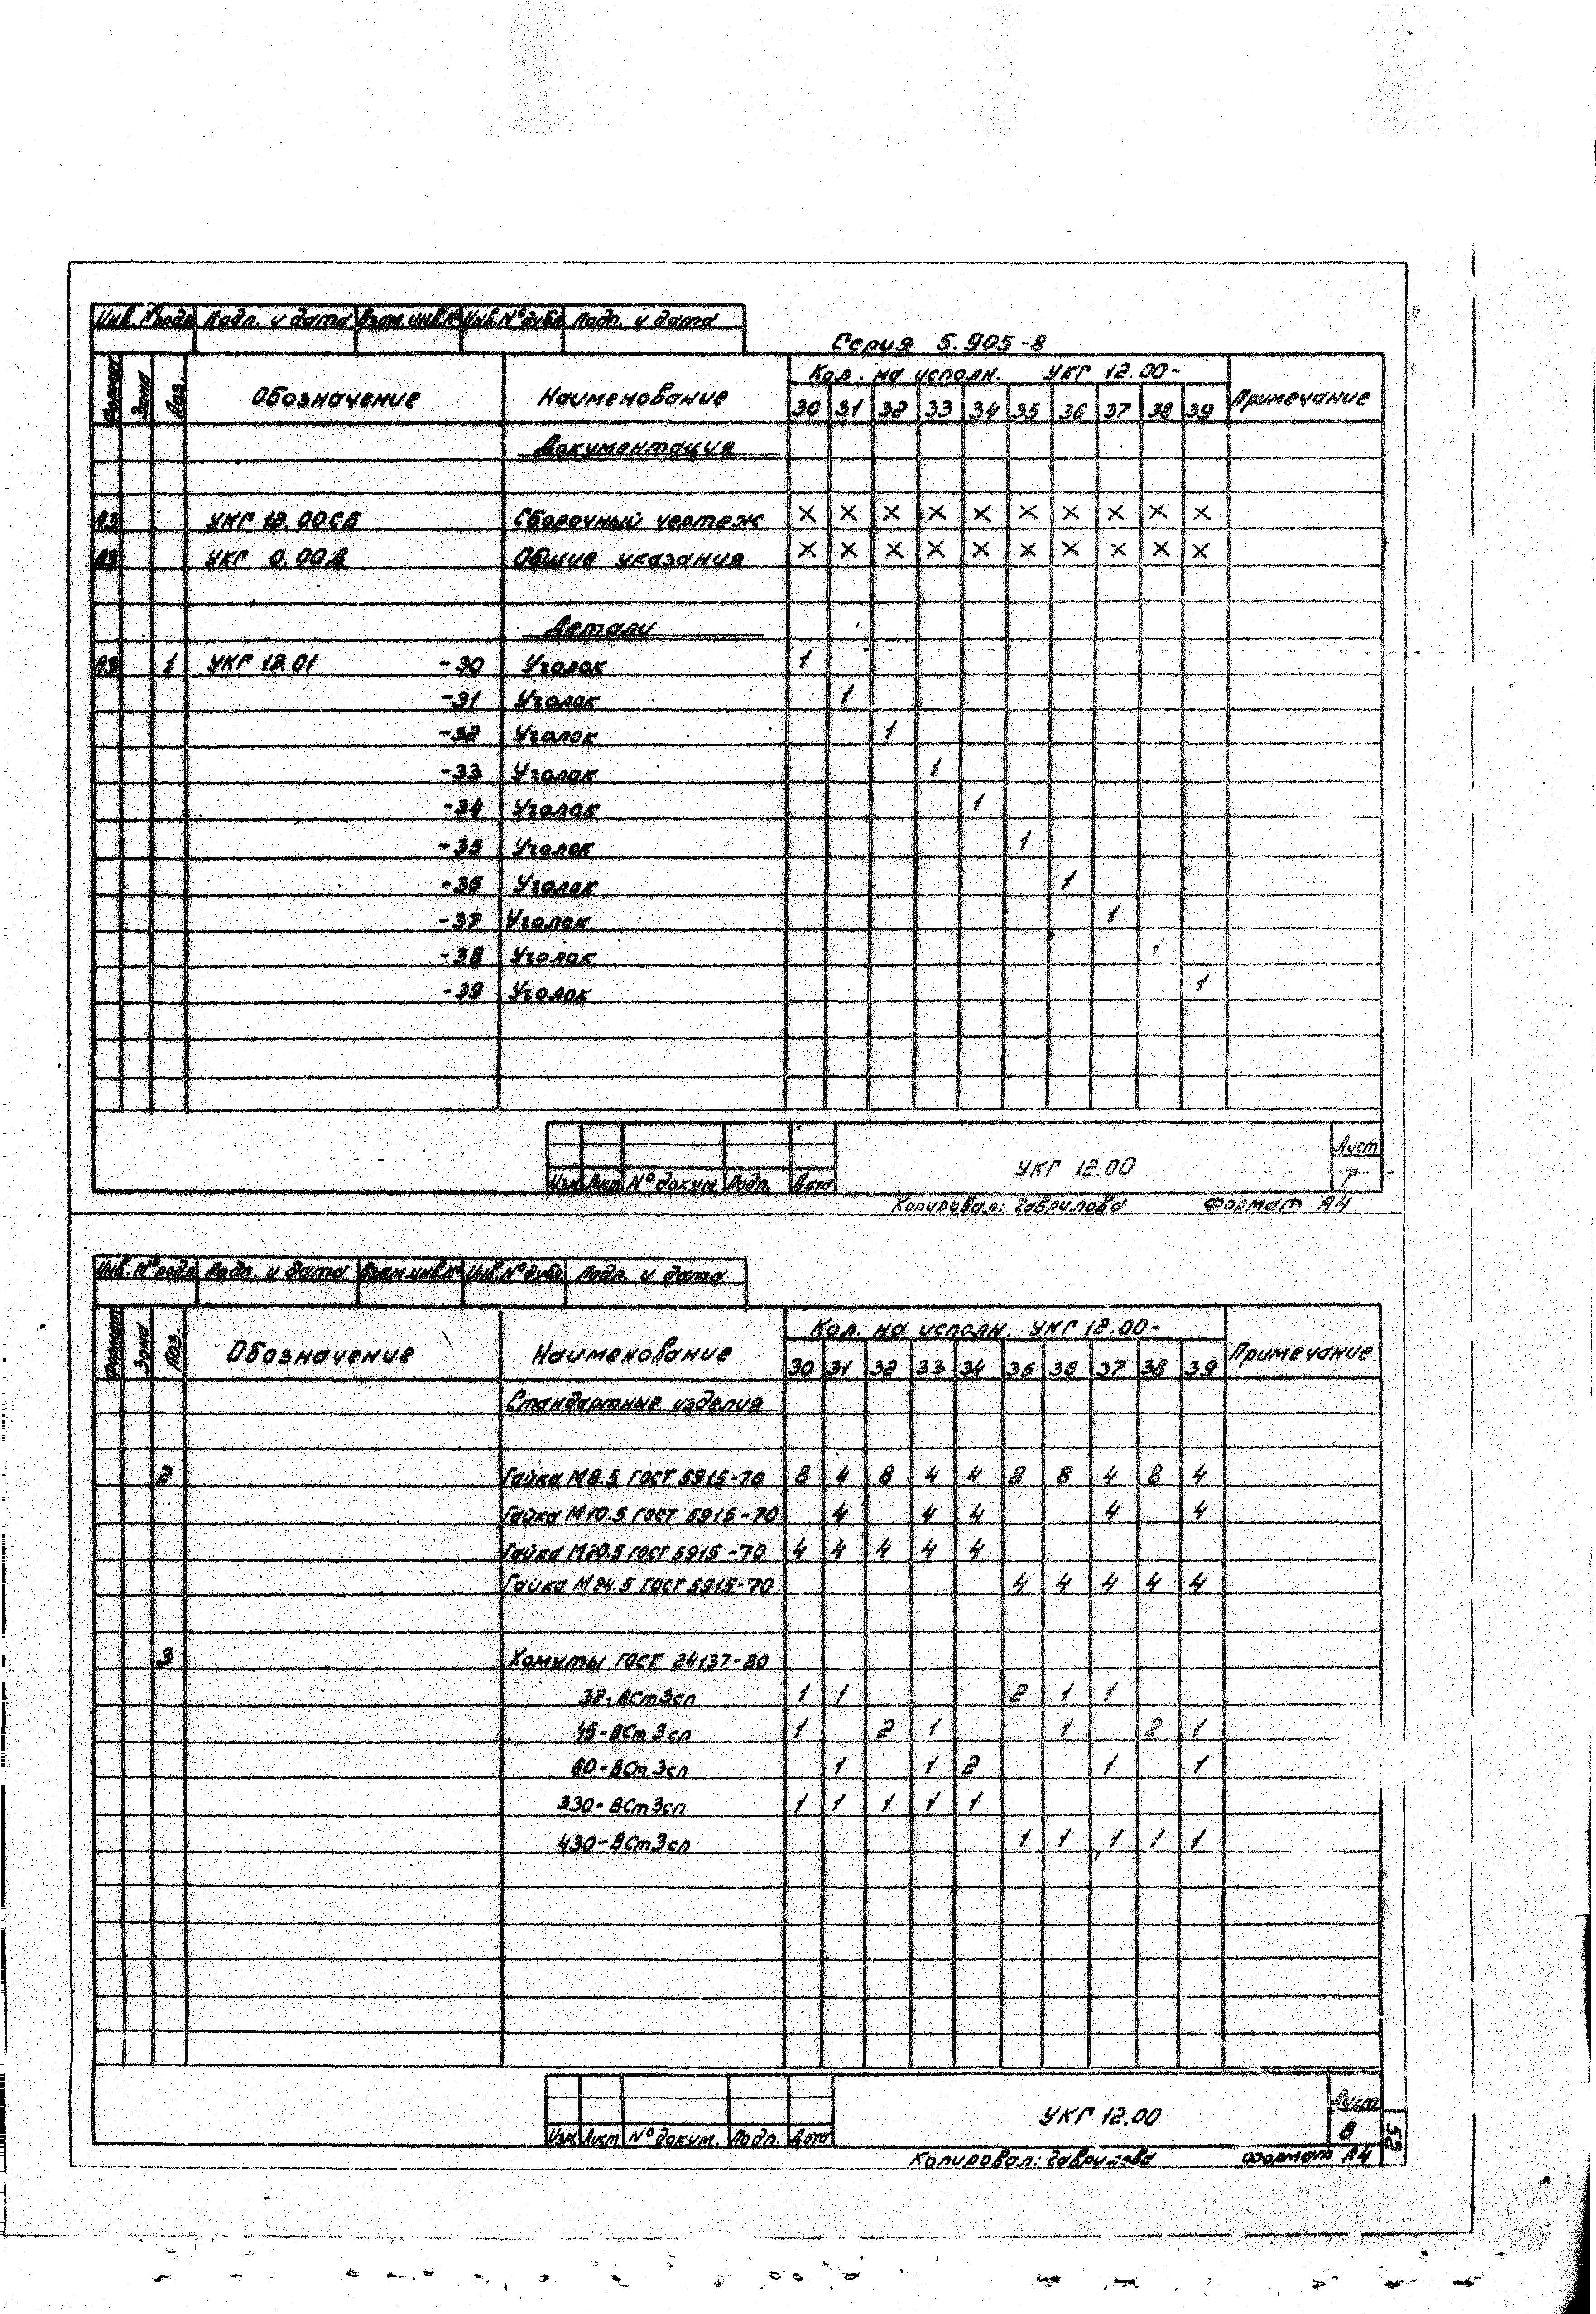 Инв. № подл. Подп. и дата Взам. инв. № Инв. № дубл. Подп. и дата
Серия 5.905-8
Формат Зона Поз. Обозначение Наименование Кол. на исполн. УКГ 12.00- Примечание
30 31 32 33 34 35 36 37 38 39
Документация
А3 УКГ 12.00СБ Сборочный чертеж × × × × × × × × × ×
А3 УКГ 0.00Д Общие указания × × × × × × × × × ×
Детали
А3 1 УКГ 12.01 -30 Уголок 1
-31 Уголок 1
-32 Уголок 1
-33 Уголок 1
-34 Уголок 1
-35 Уголок 1
-36 Уголок 1
-37 Уголок 1
-38 Уголок 1
-39 Уголок 1
Изм. Лист № докум. Подп. Дата УКГ 12.00 Лист 7
Копировал: Гаврилова Формат А4
Инв. № подл. Подп. и дата Взам. инв. № Инв. № дубл. Подп. и дата
Формат Зона Поз. Обозначение Наименование Кол. на исполн. УКГ 12.00- Примечание
30 31 32 33 34 35 36 37 38 39
Стандартные изделия
2 Гайка М8.5 ГОСТ 5915-70 8 4 8 4 4 8 8 4 8 4
Гайка М10.5 ГОСТ 5915-70 4 4 4 4 4
Гайка М20.5 ГОСТ 5915-70 4 4 4 4 4
Гайка М24.5 ГОСТ 5915-70 4 4 4 4 4
3 Хомуты ГОСТ 24137-80
32-ВСт3сп 1 1 2 1 1
45-ВСт3сп 1 2 1 1 2 1
60-ВСт3сп 1 1 2 1 1
330-ВСт3сп 1 1 1 1 1
430-ВСт3сп 1 1 1 1 1
Изм. Лист № докум. Подп. Дата УКГ 12.00 Лист 8
52
Копировал: Гаврилова Формат А4